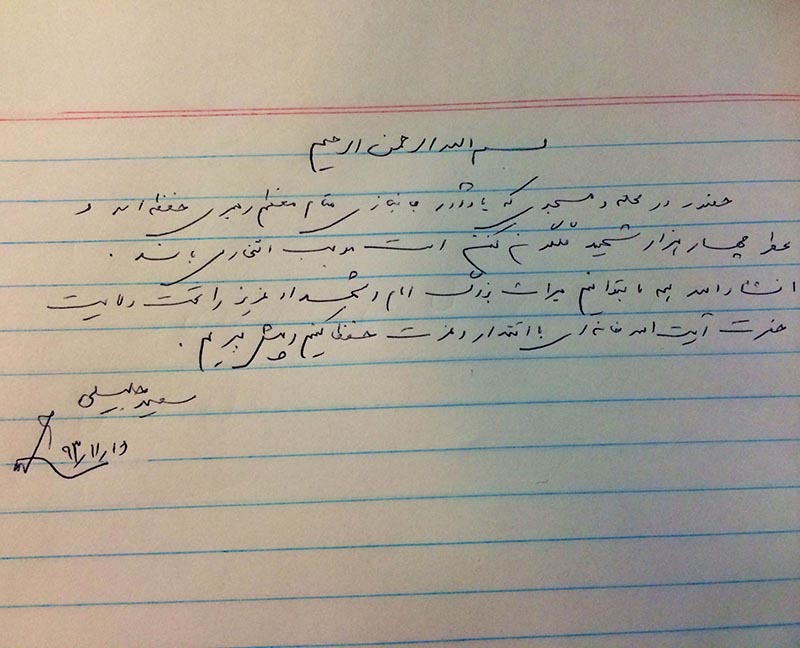 بسم الله الرحمن الرحیم
حضور در محله و مسجدی که یادآور جانبازی مقام معظم رهبری حفظه الله و
عطر چهار هزار شهید است موجب افتخاری باشد .
انشاءالله همه ما بتوانیم میراث بزرگ امام و شهدای عزیز را تحت ولایت
حضرت آیت الله خامنه ای با اقتدار و عزت حفظ کنیم و پیش ببریم .
سعید جلیلی
۹۳/۱۱/۱۵